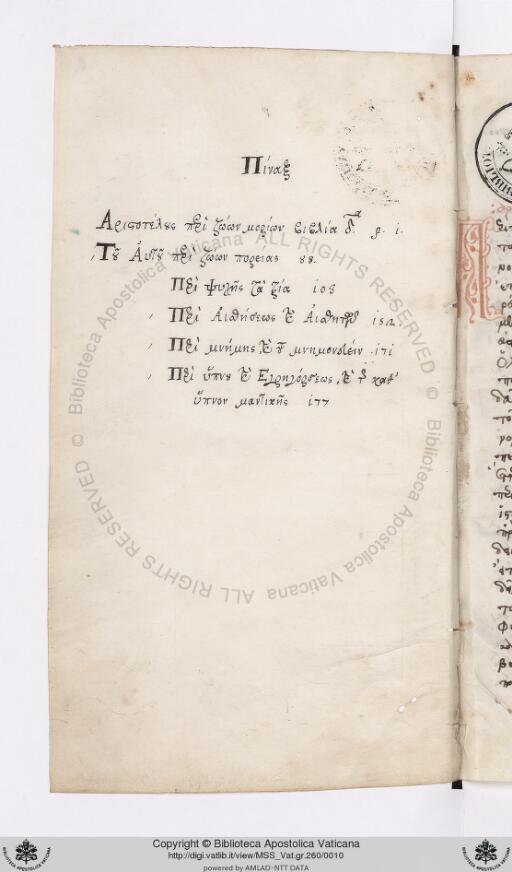 Πίναξ
Ἀριστοτέλους περὶ ζώων μορίων βιβλία δ. p. 1.
Τοῦ Αὐτοῦ περὶ ζώων πορείας 88.
Περὶ ψυχῆς τὰ τρία 108
Περὶ Αἰσθήσεως καὶ Αἰσθητῶν 152
Περὶ μνήμης, καὶ τοῦ μνημονεύειν 171
Περὶ ὕπνου καὶ Ἐγρηγόρσεως, καὶ τῆς καθ'
ὕπνον μαντικῆς 177
ALL RIGHTS RESERVED © Biblioteca Apostolica Vaticana ALL RIGHTS RESERVED © Biblioteca Apostolica Vaticana
Copyright © Biblioteca Apostolica Vaticana
http://digi.vatlib.it/view/MSS_Vat.gr.260/0010
powered by AMLAD-NTT DATA